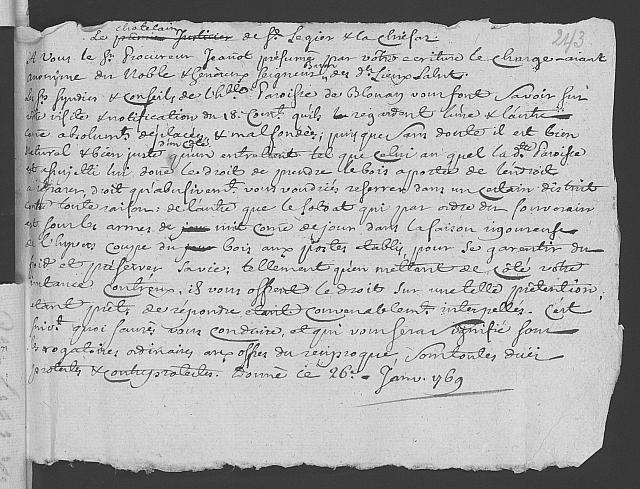 chatelain
Le Justicier de St Legier & la Chiésaz 243
A Vous le Sr Procureur Jeanot présumé par votre écriture le chargé-aiant
anonime du Noble & Généreux Seigneur Baron des dts Lieux Salut.
Les Srs Sindics & Conseils de l'hble Paroisse de Blonay vous font savoir sur
votre visite & notification du 18e Court qu'ils regardent l'une & l'autre
come absolument déplacées & mal fondées, puis que sans doute il est bien
naturel & bien juste d'un Côté qu'un entretient tel que celui au quel la dte Paroisse
est sujette lui donne le droit de prendre le bois a portée de l'endroit
à réparer, droit qu'abusivement vous voudriés resserrer dans un certain district
contre toute raison; de l'autre que le soldat qui par ordre du souverain
est sous les armes de nuit come de jour dans la saison rigoureuse
de l'hyver, coupe du bois aux postes établis, pour se garentir du
froid et préserver sa vie; tellement qu'en mettant de Côté votre
instance Contr'eux, ils vous offrent le droit sur une telle prétention,
étant prêts de répondre étant convenablement interpellés. C'est
suivt quoi saurés vous conduire, et qui vous sera signifié sous
les rogatoires ordinaires aux offres du réciproque, sous toutes dües
protestes & contreprotestes. Donné ce 26e Janv. 1769